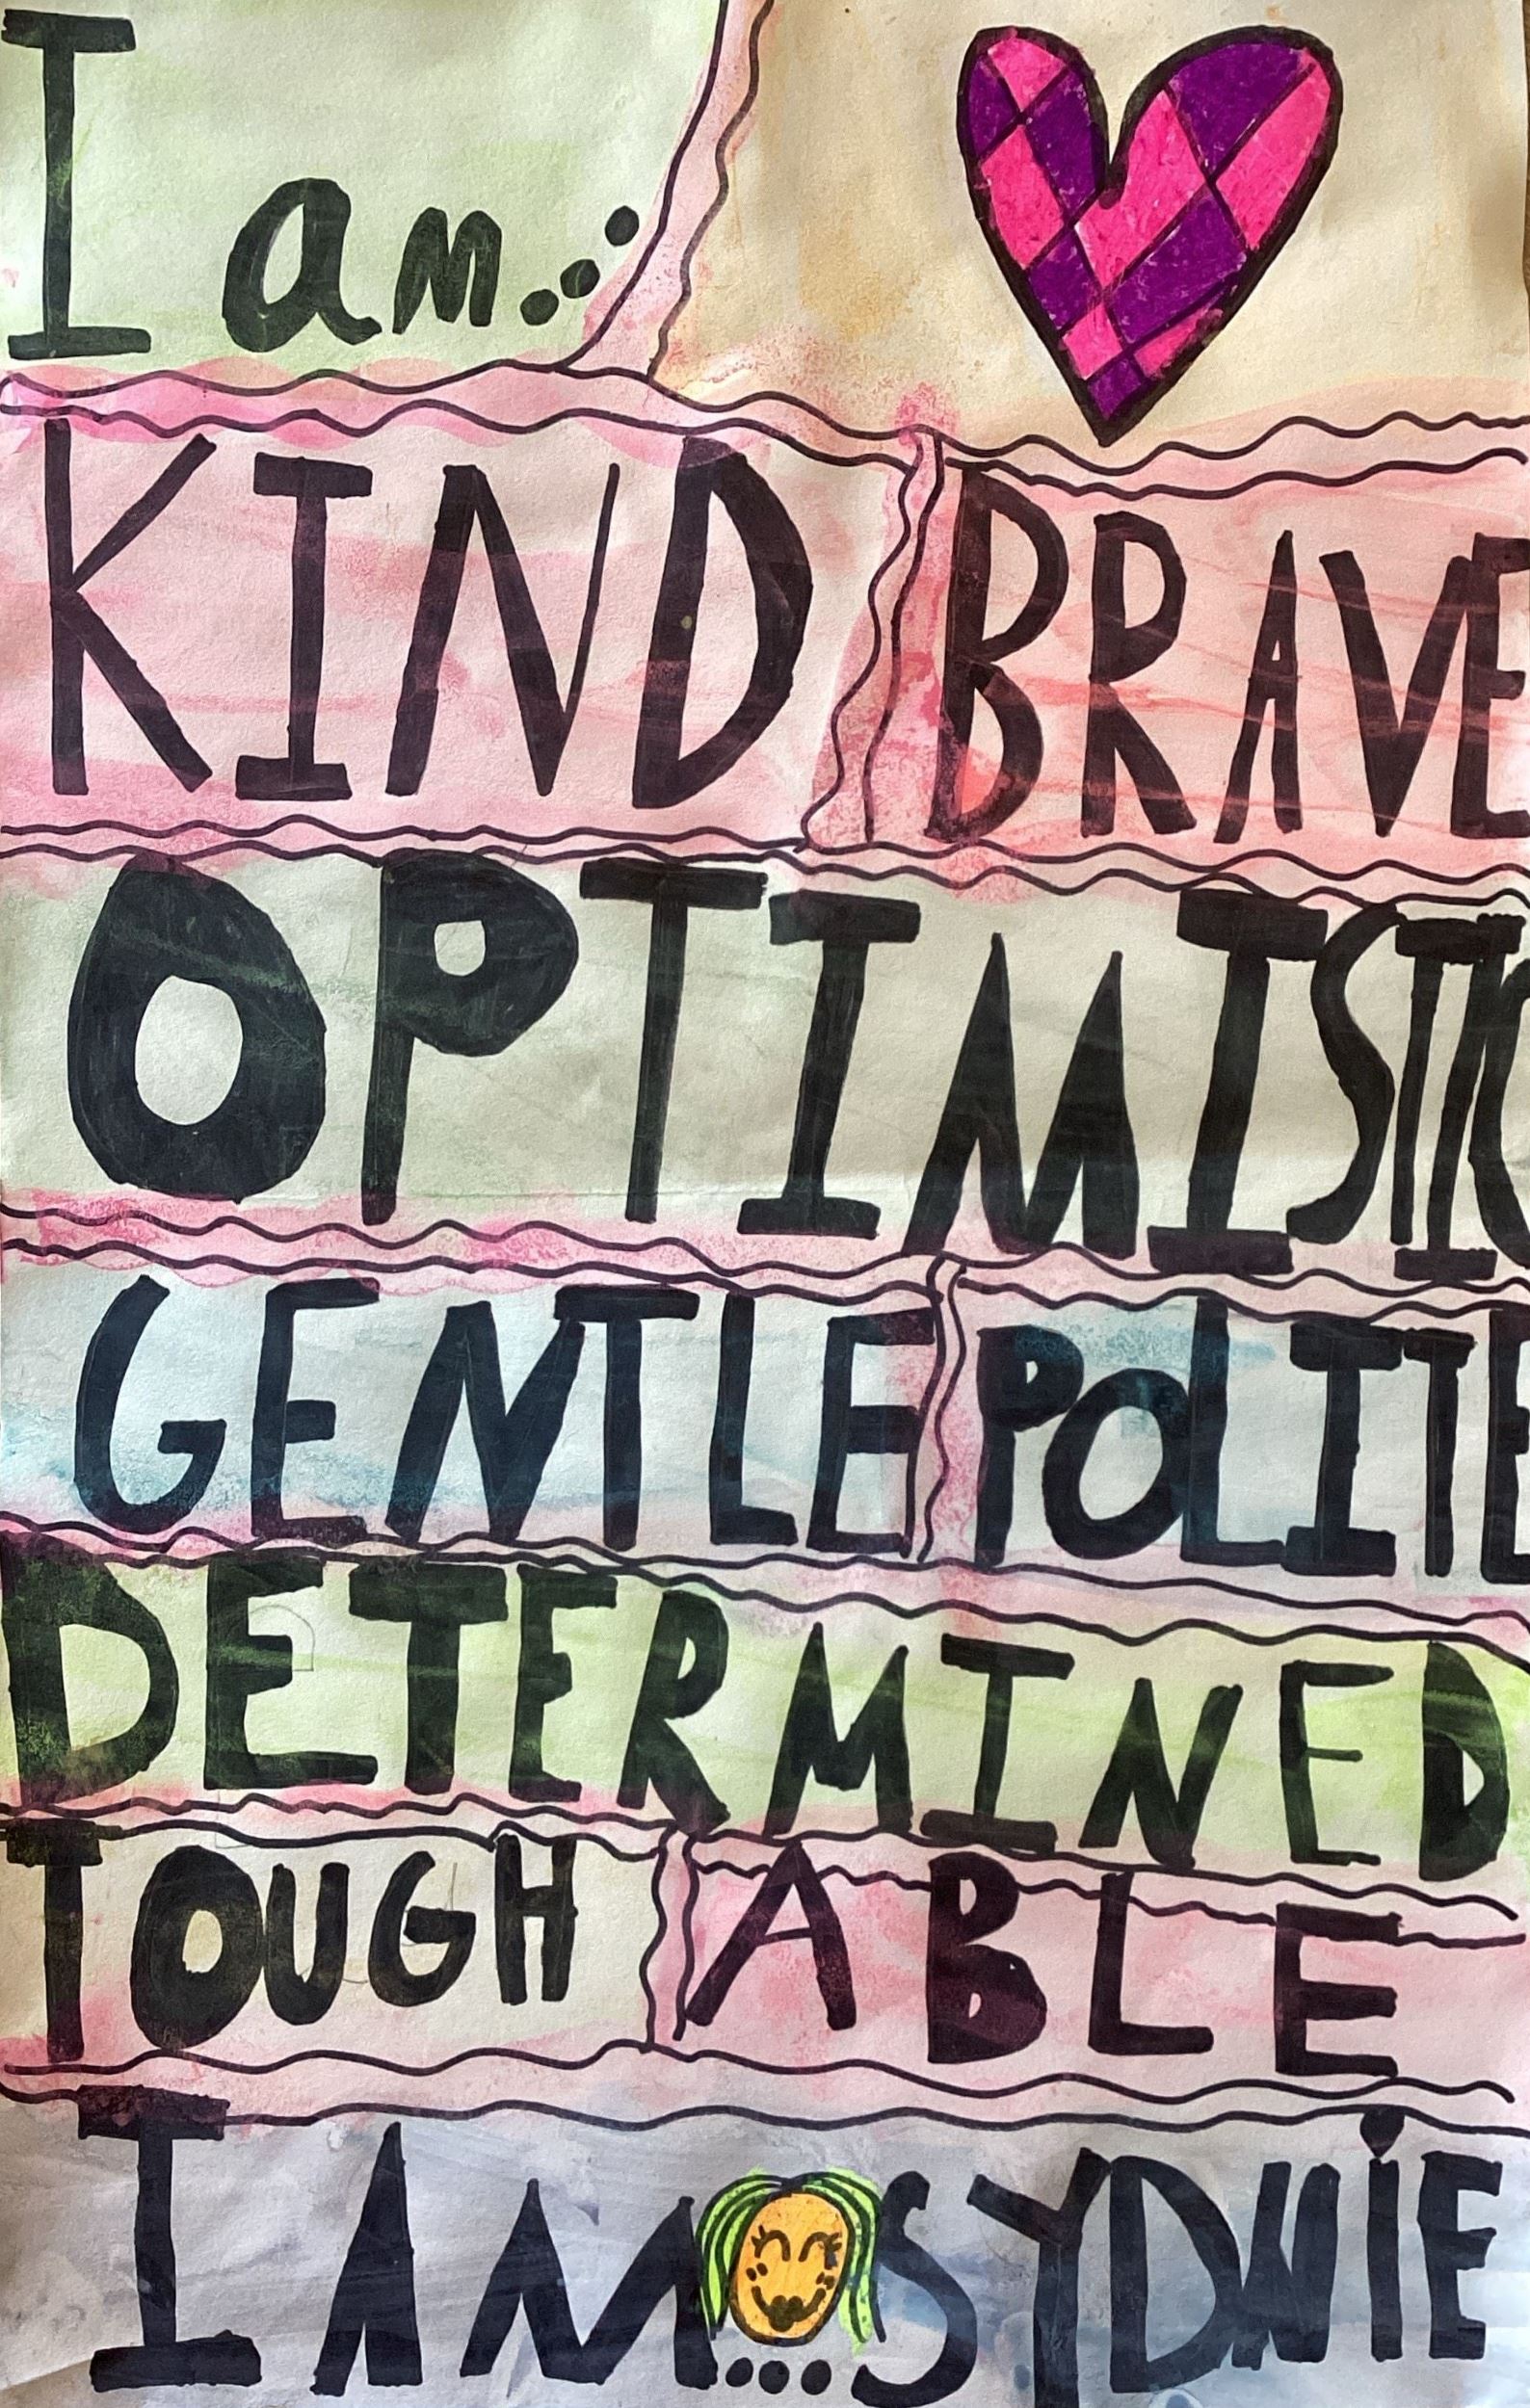 I am...
KIND BRAVE
OPTIMISTIC
GENTLE POLITE
DETERMINED
TOUGH ABLE
I AM... SYDNIE